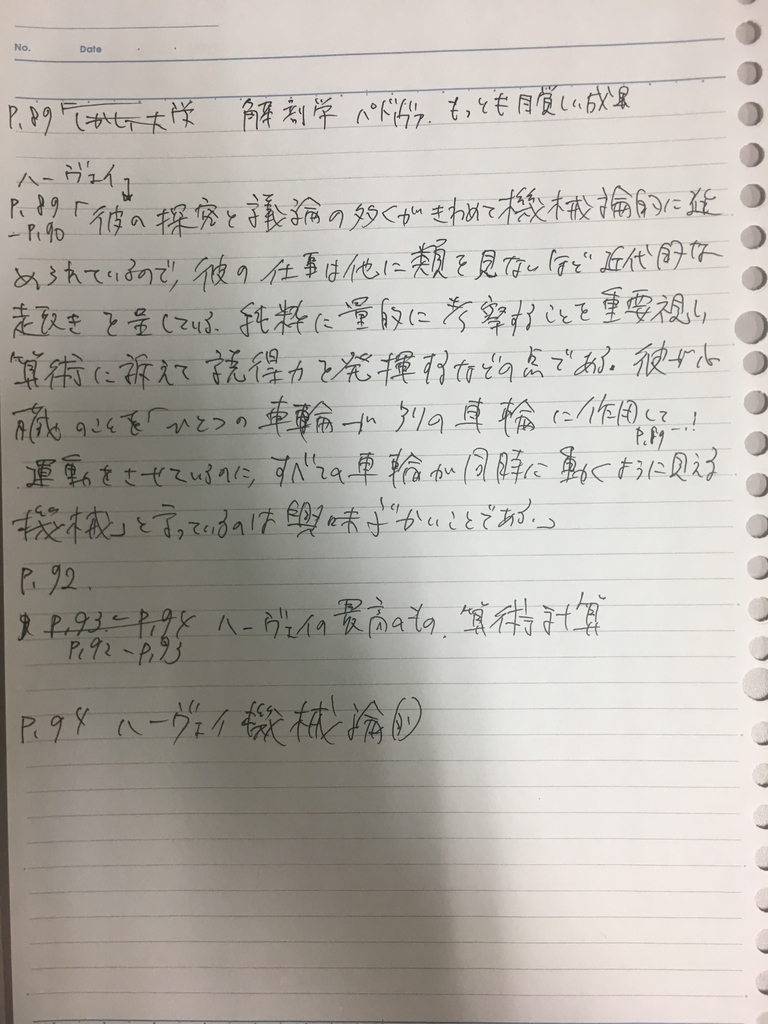 No. Date
P.89「しかして大学 解剖学 パドヴァ. もっとも目覚しい成果
ハーヴェイ↓
P.89「彼の探究と議論の多くがきわめて機械論的に進
-P.90
められているので, 彼の仕事は他に類を見ないほど近代的な
趣きを呈している. 純粋に量的に考察することを重要視し,
算術に訴えて説得力を発揮するなどの点である。彼が心
臓のことを「ひとつの車輪が別の車輪に作用して
P.89-
運動をさせているのに, すべての車輪が同時に動くように見える
機械」と言っているのは興味ぶかいことである.」
P.92.
P.93-P.94 ハーヴェイの最高のもの. 算術計算
P.92-P.93
P.94 ハーヴェイ 機械論的